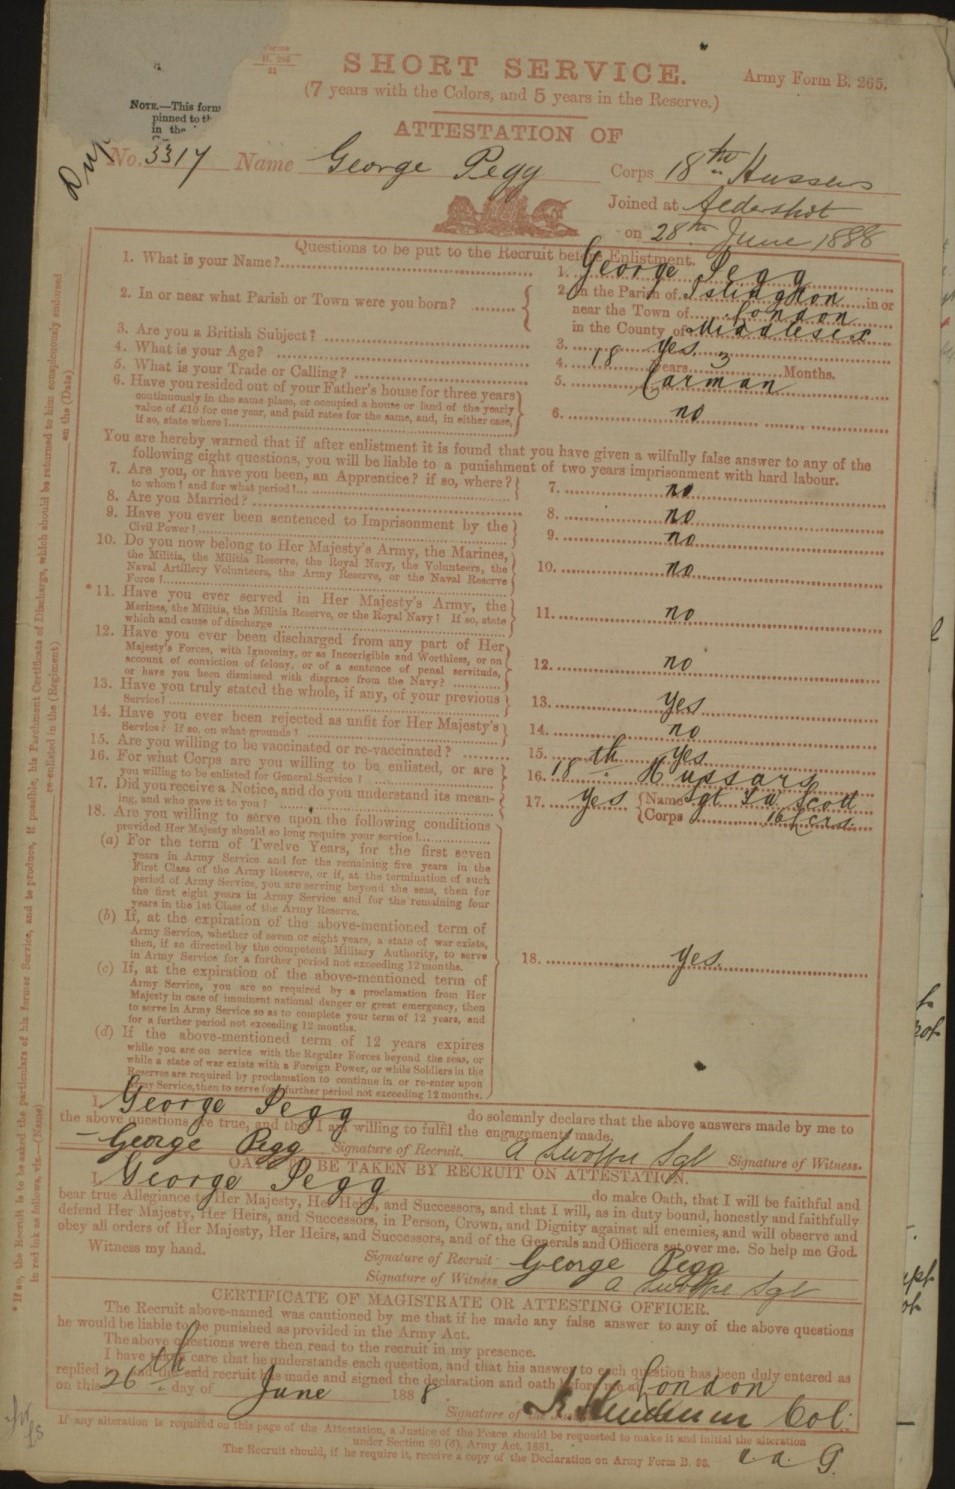 Forms
SHORT SERVICE.
Army Form B. 265.
(7 years with the Colors, and 5 years in the Reserve.)
NOTE.—This form
pinned to th
in the
ATTESTATION OF
No. 3317 Name George Pegg Corps 18th Hussars
Joined at Aldershot
on 28th June 1888
Questions to be put to the Recruit before Enlistment.
1. What is your Name? 1. George Pegg
2. In or near what Parish or Town were you born? 2. In the Parish of Islington in or
near the Town of London
in the County of Middlesex
3. Are you a British Subject? 3. Yes
4. What is your Age? 4. 18 Years 3 Months.
5. What is your Trade or Calling? 5. Carman
6. Have you resided out of your Father's house for three years
continuously in the same place, or occupied a house or land of the yearly
value of £10 for one year, and paid rates for the same, and, in either case,
if so, state where? 6. no
You are hereby warned that if after enlistment it is found that you have given a wilfully false answer to any of the
following eight questions, you will be liable to a punishment of two years imprisonment with hard labour.
7. Are you, or have you been, an Apprentice? if so, where?
to whom? and for what period? 7. no
8. Are you Married? 8. no
9. Have you ever been sentenced to Imprisonment by the
Civil Power? 9. no
10. Do you now belong to Her Majesty's Army, the Marines,
the Militia, the Militia Reserve, the Royal Navy, the Volunteers, the
Naval Artillery Volunteers, the Army Reserve, or the Naval Reserve
Force? 10. no
*11. Have you ever served in Her Majesty's Army, the
Marines, the Militia, the Militia Reserve, or the Royal Navy? If so, state
which and cause of discharge 11. no
12. Have you ever been discharged from any part of Her
Majesty's Forces, with Ignominy, or as Incorrigible and Worthless, or on
account of conviction of felony, or of a sentence of penal servitude,
or have you been dismissed with disgrace from the Navy? 12. no
13. Have you truly stated the whole, if any, of your previous
Service? 13. Yes
14. Have you ever been rejected as unfit for Her Majesty's
Service? If so, on what grounds? 14. no
15. Are you willing to be vaccinated or re-vaccinated? 15. Yes
16. For what Corps are you willing to be enlisted, or are
you willing to be enlisted for General Service? 16. 18th Hussars
17. Did you receive a Notice, and do you understand its mean-
ing, and who gave it to you? 17. Yes {Name Sgt Scott
{Corps 16 Lcrs
18. Are you willing to serve upon the following conditions
provided Her Majesty should so long require your service?
(a) For the term of Twelve Years, for the first seven
years in Army Service and for the remaining five years in the
First Class of the Army Reserve, or if, at the termination of such
period of Army Service, you are serving beyond the seas, then for
the first eight years in Army Service and for the remaining four
years in the 1st Class of the Army Reserve.
(b) If, at the expiration of the above-mentioned term of
Army Service, whether of seven or eight years, a state of war exists,
then, if so directed by the competent Military Authority, to serve
in Army Service for a further period not exceeding 12 months.
18. Yes.
(c) If, at the expiration of the above-mentioned term of
Army Service, you are so required by a proclamation from Her
Majesty in case of imminent national danger or great emergency, then
to serve in Army Service so as to complete your term of 12 years, and
for a further period not exceeding 12 months.
(d) If the above-mentioned term of 12 years expires
while you are on service with the Regular Forces beyond the seas, or
while a state of war exists with a Foreign Power, or while Soldiers in the
Reserve are required by proclamation to continue in or re-enter upon
Army Service, then to serve for a further period not exceeding 12 months.
I, George Pegg do solemnly declare that the above answers made by me to
the above questions are true, and that I am willing to fulfil the engagements made.
George Pegg Signature of Recruit. Sgt Signature of Witness.
OATH TO BE TAKEN BY RECRUIT ON ATTESTATION.
I, George Pegg do make Oath, that I will be faithful and
bear true Allegiance to Her Majesty, Her Heirs, and Successors, and that I will, as in duty bound, honestly and faithfully
defend Her Majesty, Her Heirs, and Successors, in Person, Crown, and Dignity against all enemies, and will observe and
obey all orders of Her Majesty, Her Heirs, and Successors, and of the Generals and Officers set over me. So help me God.
Witness my hand.
Signature of Recruit George Pegg
Signature of Witness Sgt
CERTIFICATE OF MAGISTRATE OR ATTESTING OFFICER.
The Recruit above-named was cautioned by me that if he made any false answer to any of the above questions
he would be liable to be punished as provided in the Army Act.
The above questions were then read to the recruit in my presence.
I have taken care that he understands each question, and that his answer to each question has been duly entered as
replied to, and the said recruit has made and signed the declaration and oath before me at London
on this 26th day of June 1888.
Signature of the Col.
If any alteration is required on this page of the Attestation, a Justice of the Peace should be requested to make it and initial the alteration
under Section 80 (6), Army Act, 1881.
The Recruit should, if he require it, receive a copy of the Declaration on Army Form B.
* If so, the Recruit is to be asked the particulars of his former Service, and to produce, if possible, his Parchment Certificate of Discharge, which should be returned to him conspicuously endorsed
in red ink as follows, viz.—(Name) re-enlisted in the (Regiment) on the (Date)